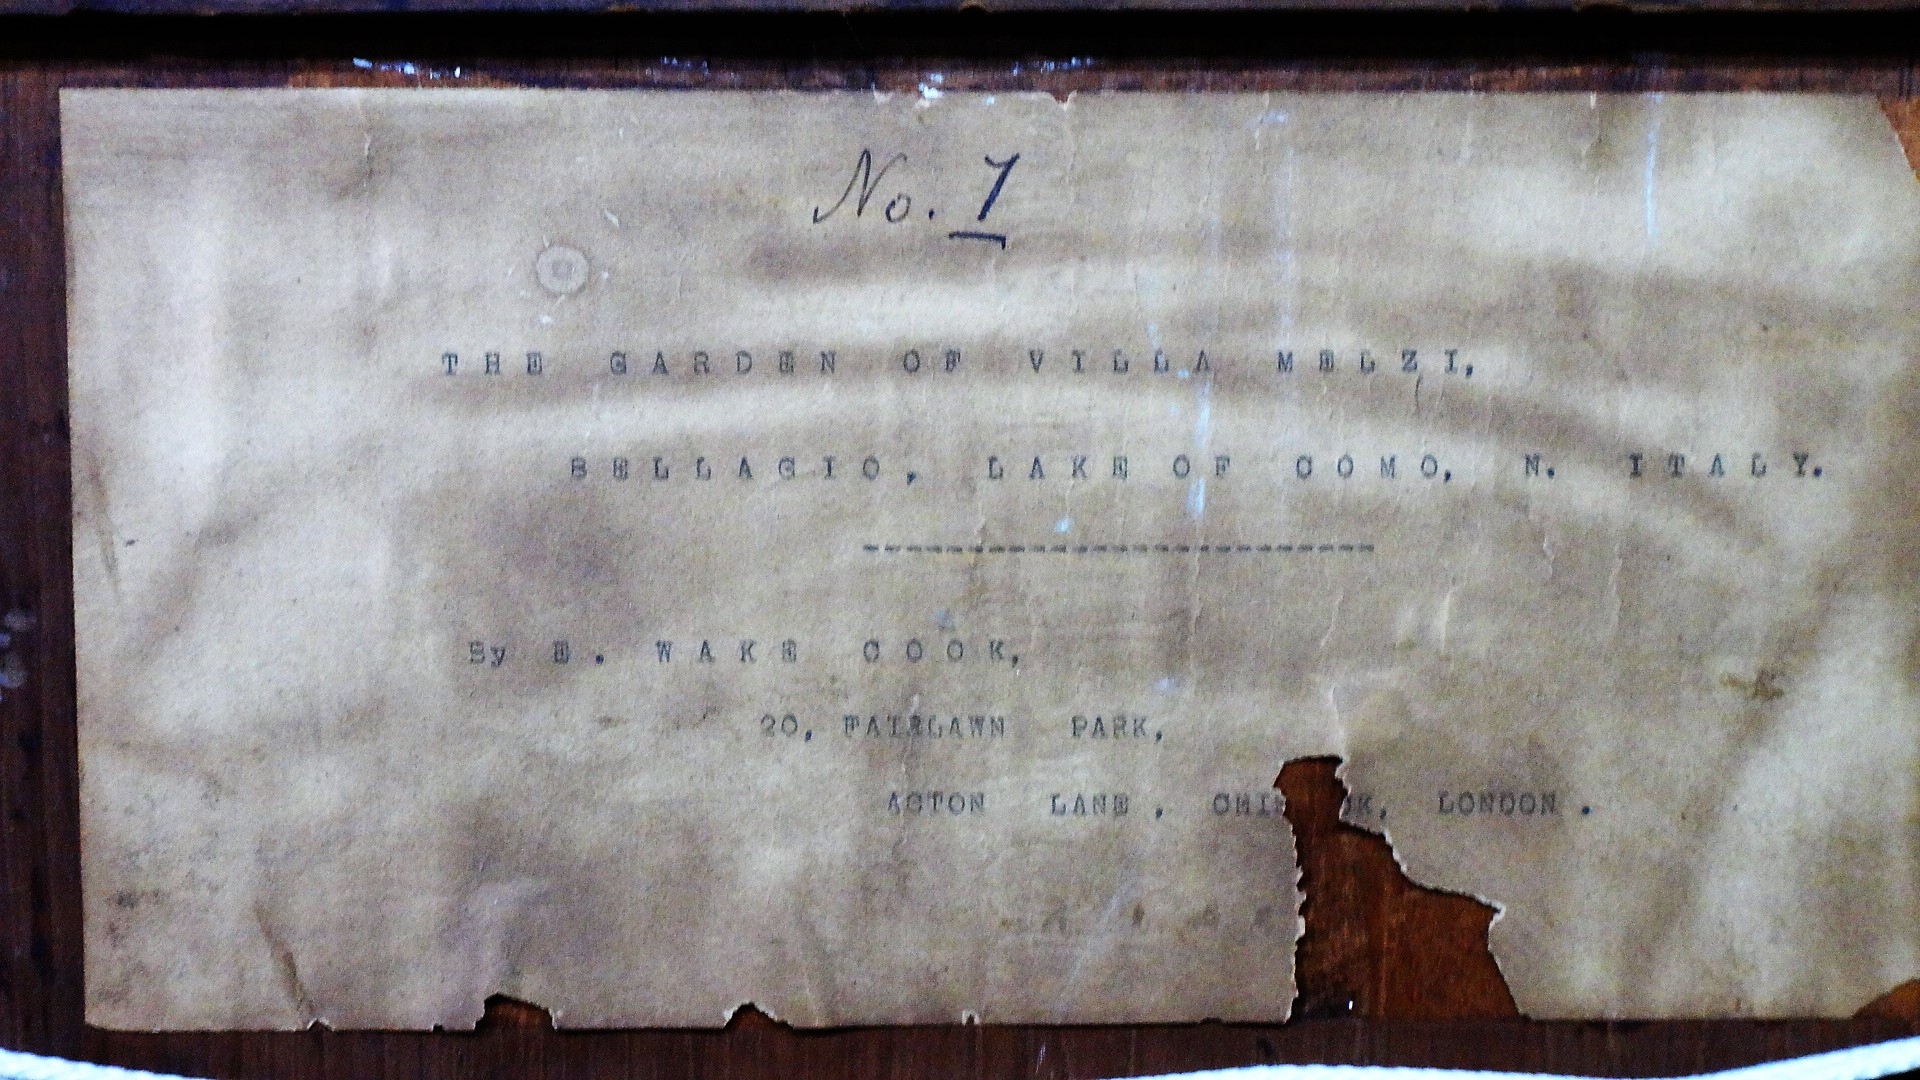 No. 7
THE GARDEN OF VILLA MELZI,
BELLAGIO, LAKE OF COMO, N. ITALY.
------------------------
By E. WAKE COOK,
20, FAIRLAWN PARK,
ACTON LANE, LONDON.